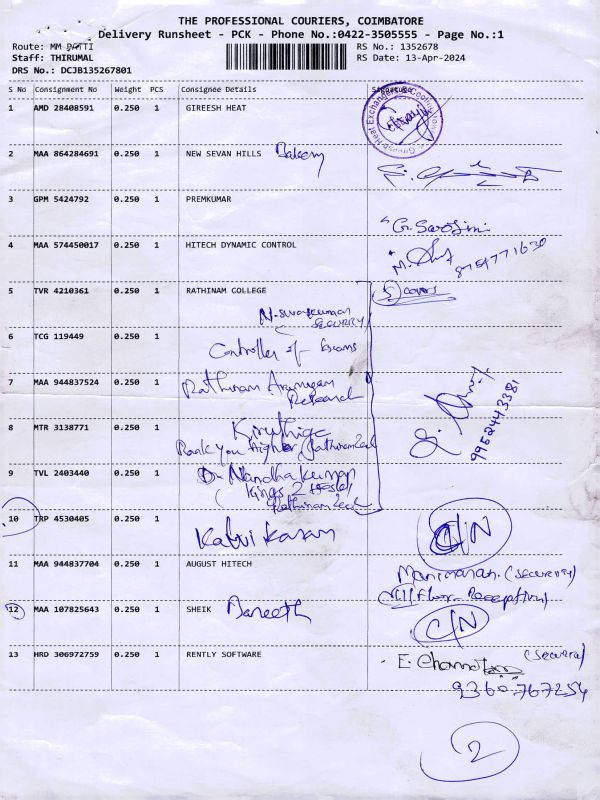 THE PROFESSIONAL COURIERS, COIMBATORE
Delivery Runsheet - PCK - Phone No.:0422-3505555 - Page No.:1
Route: MM
Staff: THIRUMAL
DRS No.: DCJB135267801
RS No.: 1352678
RS Date: 13-Apr-2024
S No Consignment No Weight PCS Consignee Details Signature
1 AMD 28408591 0.250 1 GIREESH HEAT
2 MAA 864284691 0.250 1 NEW SEVAN HILLS Bakery
3 GPM 5424792 0.250 1 PREMKUMAR
G. Sarojini
4 MAA 574450017 0.250 1 HITECH DYNAMIC CONTROL
5 TVR 4210361 0.250 1 RATHINAM COLLEGE
5 covers
N. Sivakumar
Security
6 TCG 119449 0.250 1
Controller of Exams
7 MAA 944837524 0.250 1
Rathinam Arumugam
Research
8 MTR 3138771 0.250 1
Kiruthiga
9952443381
9 TVL 2403440 0.250 1
Dr. Nandhakumar
Kings 2 Hostel
10 TRP 4530405 0.250 1
C/N
11 MAA 944837704 0.250 1 AUGUST HITECH
Manimaran. (Security)
Floor Reception)
12 MAA 107825643 0.250 1 SHEIK
C/N
13 HRD 306972759 0.250 1 RENTLY SOFTWARE
(Security)
9360767254
2